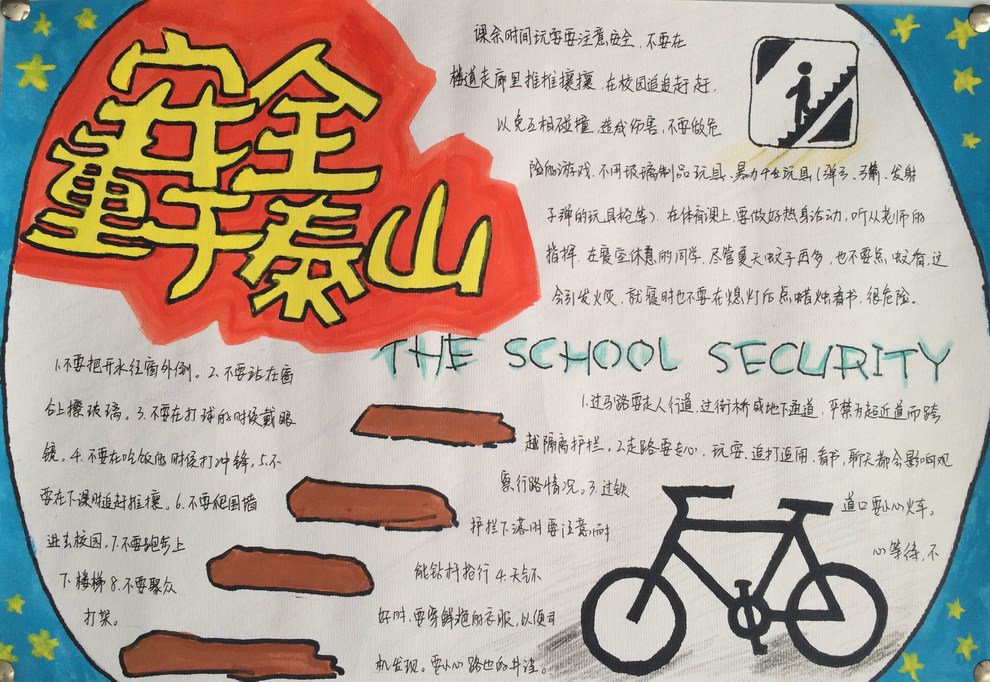 安全
重于泰山
课余时间玩耍要注意安全，不要在
楼道走廊里推推攘攘，在校园追追赶赶，
以免互相碰撞，造成伤害，不要做危
险的游戏，不用玻璃制品玩具、暴力玩具(弹弓、弓箭、发射
子弹的玩具枪等)。在体育课上要做好热身活动，听从老师的
指挥，在寝室休息的同学，尽管夏天蚊子再多，也不要点蚊香，这
会引发火灾，就寝时也不要在熄灯后点蜡烛看书，很危险。
THE SCHOOL SECURITY
1.不要把开水往窗外倒。2.不要站在窗
台上擦玻璃。3.不要在打球的时候戴眼
镜。4.不要在吃饭的时候打冲锋。5.不
要在下课时追赶推攘。6.不要爬围墙
进去校园。7.不要跑步上
下楼梯8.不要聚众
打架。
1.过马路要走人行道，过街桥或地下通道，严禁为超近道而跨
越隔离护栏。2.走路要走心，玩耍、追打追闹、看书，聊天都会影响观
察行路情况。3.过铁
道口要小心火车。
护栏下落时要注意而
心等待，不
能钻杆抢行4.天气不
好时，要穿鲜艳的衣服，以便司
机发现。要小心路边的井洼。